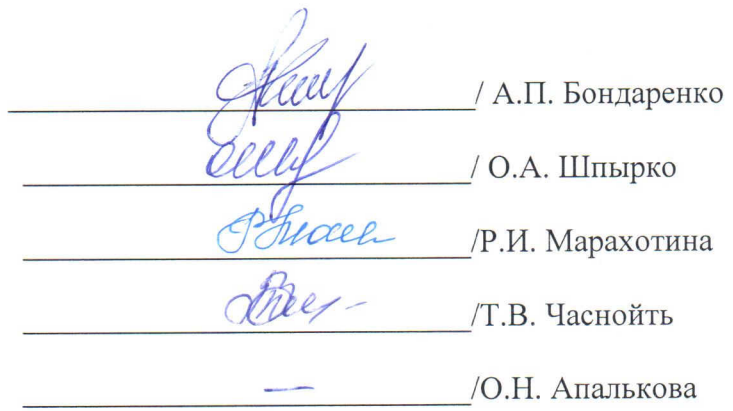 / А.П. Бондаренко
/ О.А. Шпырко
/Р.И. Марахотина
/Т.В. Часнойть
— /О.Н. Апалькова